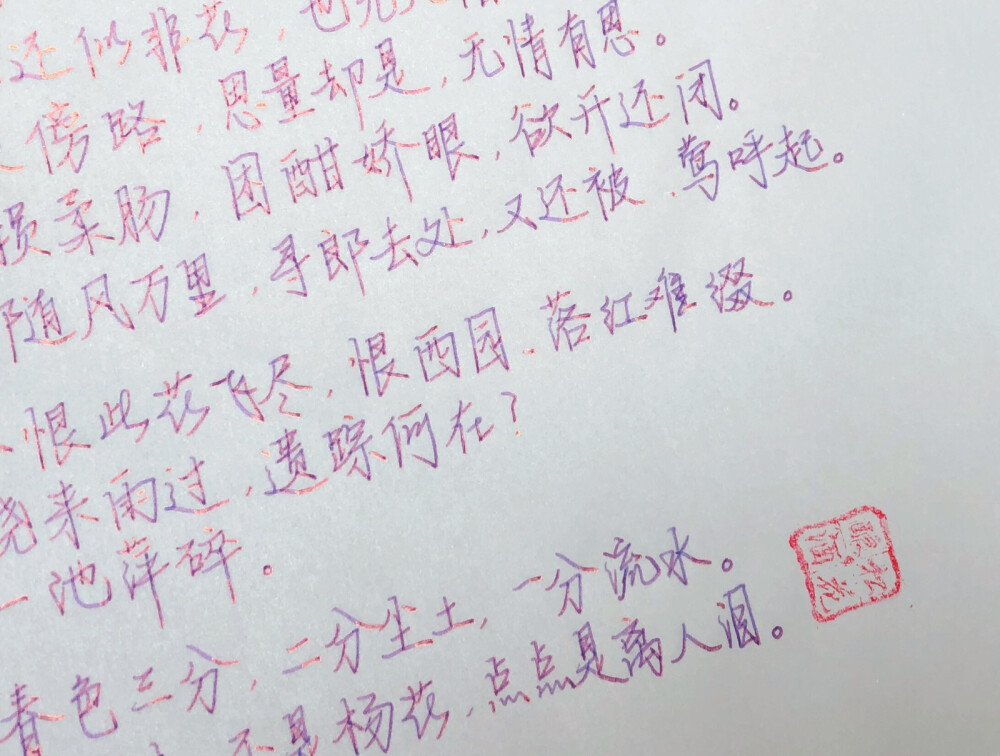 还似非花，也无人惜
傍路，思量却是，无情有思。
损柔肠，困酣娇眼，欲开还闭。
随风万里，寻郎去处，又还被、莺呼起。
恨此花飞尽，恨西园、落红难缀。
晓来雨过，遗踪何在？
一池萍碎。
春色三分，二分尘土，一分流水。
不是杨花，点点是离人泪。